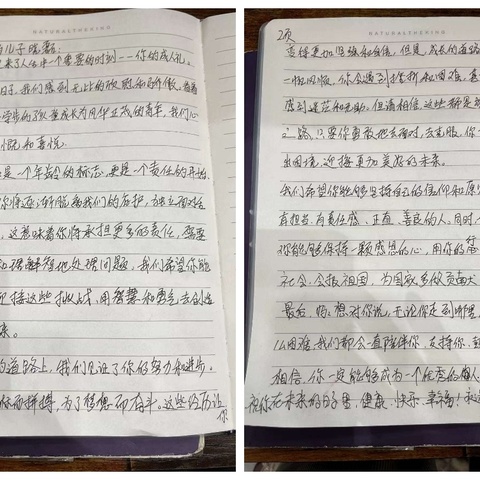 NATURALTHERING
儿子晓磊:
来了人生中一个重要的时刻——你的成人礼。
日子,我们感到无比的欣慰和骄傲,看着
学步的孩童成长为风华正茂的青年,我们心
和喜悦。
是一个年龄的标志,更是一个责任的开始
你将逐渐脱离我们的庇护,独立面对生
,这意味着你将承担更多的责任,需要
和理解去处理问题,我们希望你能
迎接这些挑战,用智慧和勇气去创造
来。
的道路上,我们见证了你的努力和进步。
而拼搏,为了梦想而奋斗,这些经历让
你
NATURALTHERING
2页
变得更加坚强和自信,但是,成长的道路
一帆风顺,你会遇到挫折和困难,甚
感到迷茫和无助。但请相信,这些都是成
之路,只要你勇敢地去面对,去克服,你
出困境,迎接更加美好的未来。
我们希望你能够坚持自己的信仰和原
有担当、有责任感、正直、善良的人。同时,
你能够保持一颗感恩的心,用你的行
社会、会报祖国,为国家多做贡献
最后,妈、想对你说,无论你走到哪里,
么困难,我们都会一直陪伴你、支持你、
相信,你一定能够成为一个优秀的人
祝你在未来的日子里,健康、快乐、幸福!